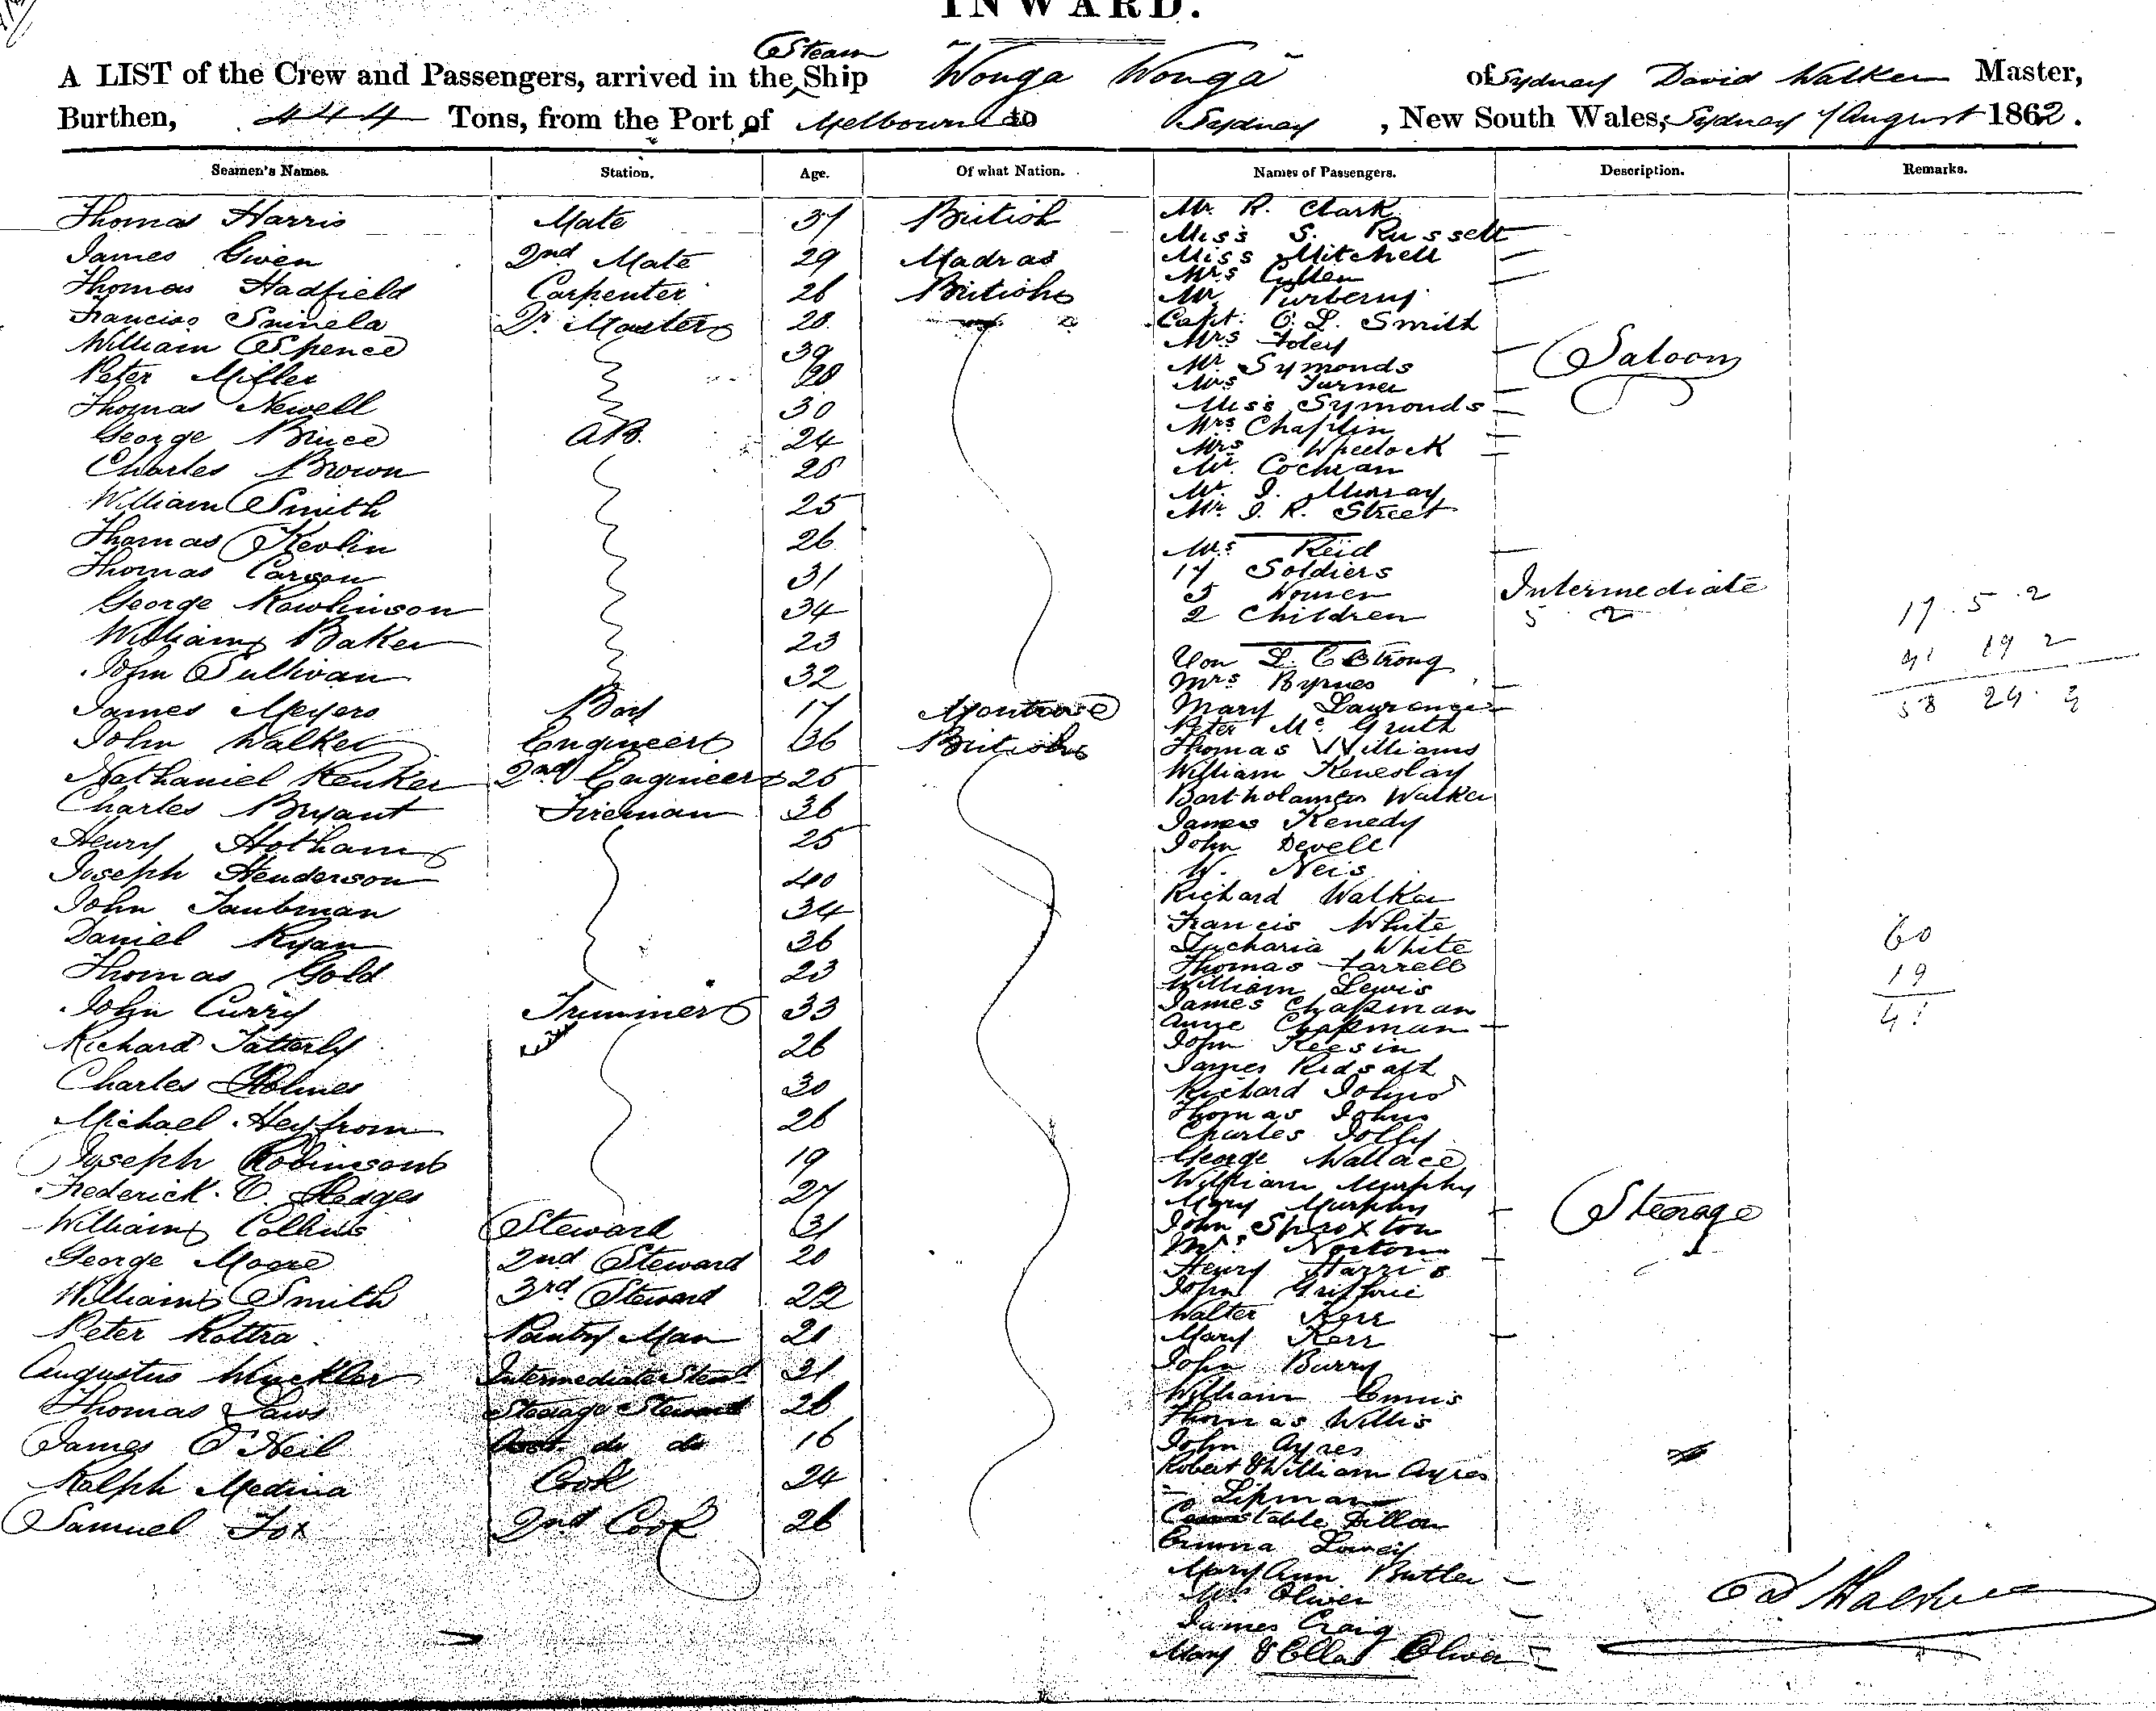 INWARD.
Steam
A LIST of the Crew and Passengers, arrived in the Ship Wonga Wonga of Sydney David Walker Master,
Burthen, 444 Tons, from the Port of Melbourne to Sydney, New South Wales, Sydney August 1862.
Seamen's Names. Station. Age. Of what Nation. Names of Passengers. Description. Remarks.
Thomas Harris Mate 31 British
James Given 2nd Mate 29 Madras
Thomas Hadfield Carpenter 26 British
Francis Qr. Masters 28
William Spence 39
Peter Miller 28
Thomas Newell 30
George Bruce AB. 24
Charles Brown 25
William Smith 25
Thomas 26
Thomas Carson 31
George Rowlinson 34
William Baker 23
John Sullivan 32
James Meyers Boy 17 Montrose
John Walker Engineer 36 British
Nathaniel 2nd Engineer 25
Charles Bryant Fireman 36
Henry Hotham 25
Joseph Henderson 40
John Taubman 34
Daniel Ryan 36
Thomas Gold 23
John Curry Trimmer 33
Richard Tatterly 26
Charles Holmes 30
Michael 26
Joseph Robinson 19
Frederick O. Hedges 27
William Collins Steward 31
George Moore 2nd Steward 20
William Smith 3rd Steward 22
Peter Rottra Pantry Man 21
Augustus Winckler Intermediate Stewd 31
Thomas Laws Steerage Steward 26
James O'Neil Asst. do do 16
Ralph Medina Cook 24
Samuel Fox 2nd Cook 26
Mr. R. Clark
Miss S. Russell
Miss Mitchell
Mrs Cullen
Mr Purberry
Capt. C. L. Smith
Mrs Foley
Mr. Symonds
Mrs Turner
Miss Symonds
Mrs Chaplin
Mrs Wheelock
Mr. Cochran
Mr. J. Murray
Mr. J. R. Street
Saloon
Mrs Reid
17 Soldiers
5 Women
2 Children
Intermediate
5 2
Von L. C Strong
Mrs Byrnes
Mary Lawrence
Peter Mc. Gruth
Thomas Williams
William
Bartholamew Walker
James Kenedy
John Devell
W. Neis
Richard Walker
Francis White
Zucharia White
Thomas Farrell
William Lewis
James Chapman
Anne Chapman
John Keesin
James
Richard Johns
Thomas Johns
Charles Jolly
George Wallace
William Murphy
Mary Murphy
John Sproxton
Mrs. Norton
Henry Harris
John
Walter Kerr
Mary Kerr
John Burry
William Ennis
Thomas Willis
John Ayres
Robert & William Ayres
Lipman
Constable Dillon
Emma Lowey
Mary Ann Butler
Mrs Oliver
James Craig
Mary & Ella Oliver
Steerage
17 5 2
41 19 2
58 24 4
60
19
41
D Walker